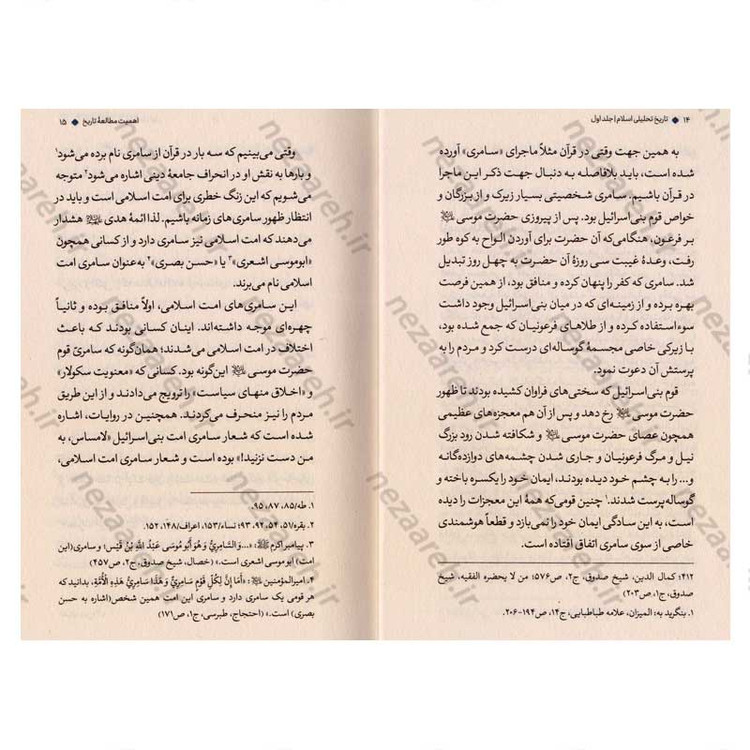 ۱۴ ◆ تاریخ تحلیلی اسلام | جلد اول
به همین جهت وقتی در قرآن مثلاً ماجرای «سامری» آورده
شده است، باید بلافاصله به دنبال جهت ذکر این ماجرا
در قرآن باشیم. سامری شخصیتی بسیار زیرک و از بزرگان و
خواص قوم بنی‌اسرائیل بود. پس از پیروزی حضرت موسی ﷺ
بر فرعون، هنگامی‌که آن حضرت برای آوردن الواح به کوه طور
رفت، وعدهٔ غیبت سی روزهٔ آن حضرت به چهل روز تبدیل
شد. سامری که کفر را پنهان کرده و منافق بود، از این فرصت
بهره برده و از زمینه‌ای که در میان بنی‌اسرائیل وجود داشت
سوءاستفاده کرده و از طلاهای فرعونیان که جمع شده بود،
با زیرکی خاصی مجسمهٔ گوساله‌ای درست کرد و مردم را به
پرستش آن دعوت نمود.
قوم بنی‌اسرائیل که سختی‌های فراوان کشیده بودند تا ظهور
حضرت موسی رخ دهد و پس از آن هم معجزه‌های عظیمی
همچون عصای حضرت موسی و شکافته شدن رود بزرگ
نیل و مرگ فرعونیان و جاری شدن چشمه‌های دوازده‌گانه
و... را به چشم خود دیده بودند، ایمان خود را یکسره باخته و
گوساله‌پرست شدند.۱ چنین قومی‌که همهٔ این معجزات را دیده
است، به این سادگی ایمان خود را نمی‌بازد و قطعاً هوشمندی
خاصی از سوی سامری اتفاق افتاده است.
۴۱۲؛ کمال الدین، شیخ صدوق، ج۲، ص۵۷۶؛ من لا یحضره الفقیه، شیخ
صدوق، ج۱، ص۲۰۳)
۱. بنگرید به: المیزان، علامه طباطبایی، ج۱۴، ص۱۹۴-۲۰۶.
اهمیت مطالعهٔ تاریخ ◆ ۱۵
وقتی می‌بینیم که سه بار در قرآن از سامری نام برده می‌شود۱
و بارها به نقش او در انحراف جامعهٔ دینی اشاره می‌شود۲ متوجه
می‌شویم که این زنگ خطری برای امت اسلامی است و باید در
انتظار ظهور سامری‌های زمانه باشیم. لذا ائمهٔ هدی هشدار
می‌دهند که امت اسلامی نیز سامری دارد و از کسانی همچون
«ابوموسی اشعری»۳ یا «حسن بصری»۴ به‌عنوان سامری امت
اسلامی نام می‌برند.
این سامری‌های امت اسلامی، اولاً منافق بوده و ثانیاً
چهره‌ای موجه داشته‌اند. اینان کسانی بودند که باعث
اختلاف در امت اسلامی می‌شدند؛ همان‌گونه که سامریِ قوم
حضرت موسی این‌گونه بود. کسانی که «معنویت سکولار»
و «اخلاق منهای سیاست» را ترویج می‌دادند و از این طریق
مردم را نیز منحرف می‌کردند. همچنین در روایات، اشاره
شده است که شعار سامری امت بنی‌اسرائیل «لامساس، به
من دست نزنید!» بوده است و شعار سامری امت اسلامی،
۱. طه/۸۵، ۸۷، ۹۵.
۲. بقره/۵۱، ۵۴، ۹۲، ۹۳؛ نساء/۱۵۳، اعراف/۱۴۸، ۱۵۲.
۳. پیامبراکرم: «...وَالسَّامِرِيُّ وَهُوَ أَبُو مُوسَى عَبْدُ اللَّهِ بْنُ قَيْسٍ؛ و سامری(این
امت) ابوموسی اشعری است.» (خصال، شیخ صدوق، ج۲، ص۴۵۷)
۴. امیرالمؤمنین: «أَمَا إِنَّ لِكُلِّ قَوْمٍ سَامِرِيٌّ وَهَذَا سَامِرِيُّ هَذِهِ الْأُمَّةِ، بدانید که
هر قومی یک سامری دارد و سامری این امت همین شخص(اشاره به حسن
بصری) است.» (احتجاج، طبرسی، ج۱، ص۱۷۱)
nezaareh.ir